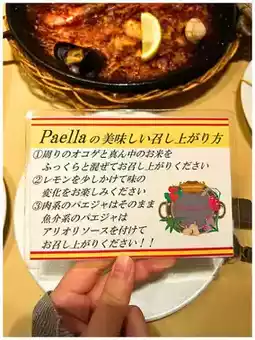 Paellaの美味しい召し上がり方
①周りのオコゲと真ん中のお米を
ふっくらと混ぜてお召し上がりください
②レモンを少しかけて味の
変化をお楽しみください
③肉系のパエジャはそのまま
魚介系のパエジャは
アリオリソースを付けて
お召し上がりください！！